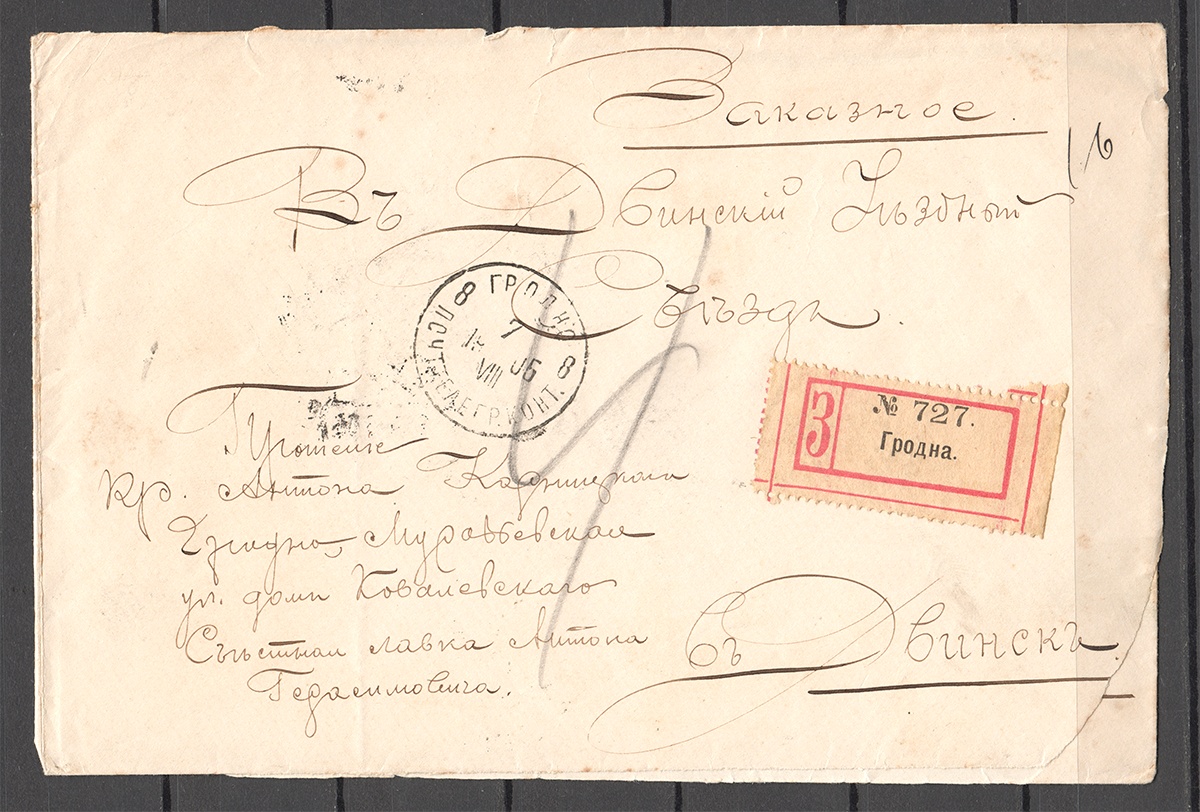 Заказное.
Въ Двинскій Уѣздный
Съѣздъ.
ГРОДНО
7
VIII
8 8
ПОЧТ. ТЕЛЕГР. КОНТ.
З
№ 727.
Гродна.
Прошеніе
Кр. Антона
Гродно, Муравьевская
ул. домъ Ковалевскаго
Съѣстная лавка Антона
Герасимовича.
въ Двинскъ.